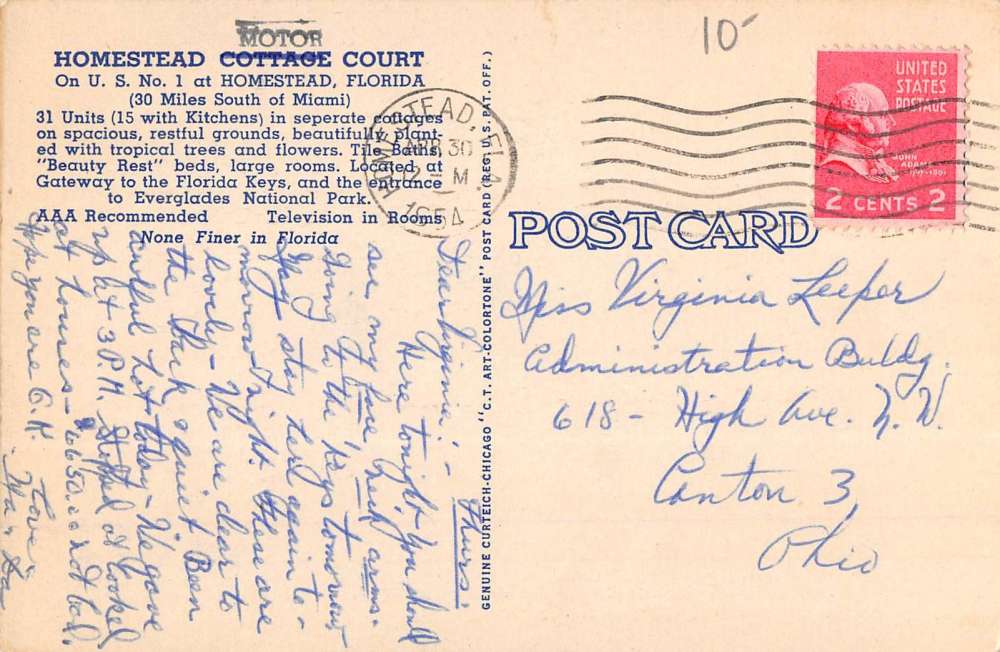 10-
MOTOR
HOMESTEAD COTTAGE COURT
On U. S. No. 1 at HOMESTEAD, FLORIDA
(30 Miles South of Miami)
31 Units (15 with Kitchens) in seperate cottages
on spacious, restful grounds, beautifully plant-
ed with tropical trees and flowers. Tile Baths,
"Beauty Rest" beds, large rooms. Located at
Gateway to the Florida Keys, and the entrance
to Everglades National Park.
AAA Recommended Television in Rooms
None Finer in Florida
HOMESTEAD, FLA.
APR 30
2 - M
1954
UNITED
STATES
POSTAGE
JOHN
ADAMS
1797-1801
2 CENTS 2
GENUINE CURTEICH-CHICAGO "C.T. ART-COLORTONE" POST CARD (REG. U.S. PAT. OFF.)
POST CARD
Thurs.
Dear Virginia: -
Here tonight. You should
see my face, neck, arms.
Going to the Keys tomorrow
May stay here again to-
morrow night. These are
lovely - We are clear to
the back & quiet. Been
awful hot today - We gave
up at 3 P.M. Stopped & looked
at houses - 6650. not bad.
Hope you are O.K.
Love
Ma & Da
Miss Virginia Leeper
Administration Buldg.
618 - High Ave. N. W.
Canton 3,
Ohio